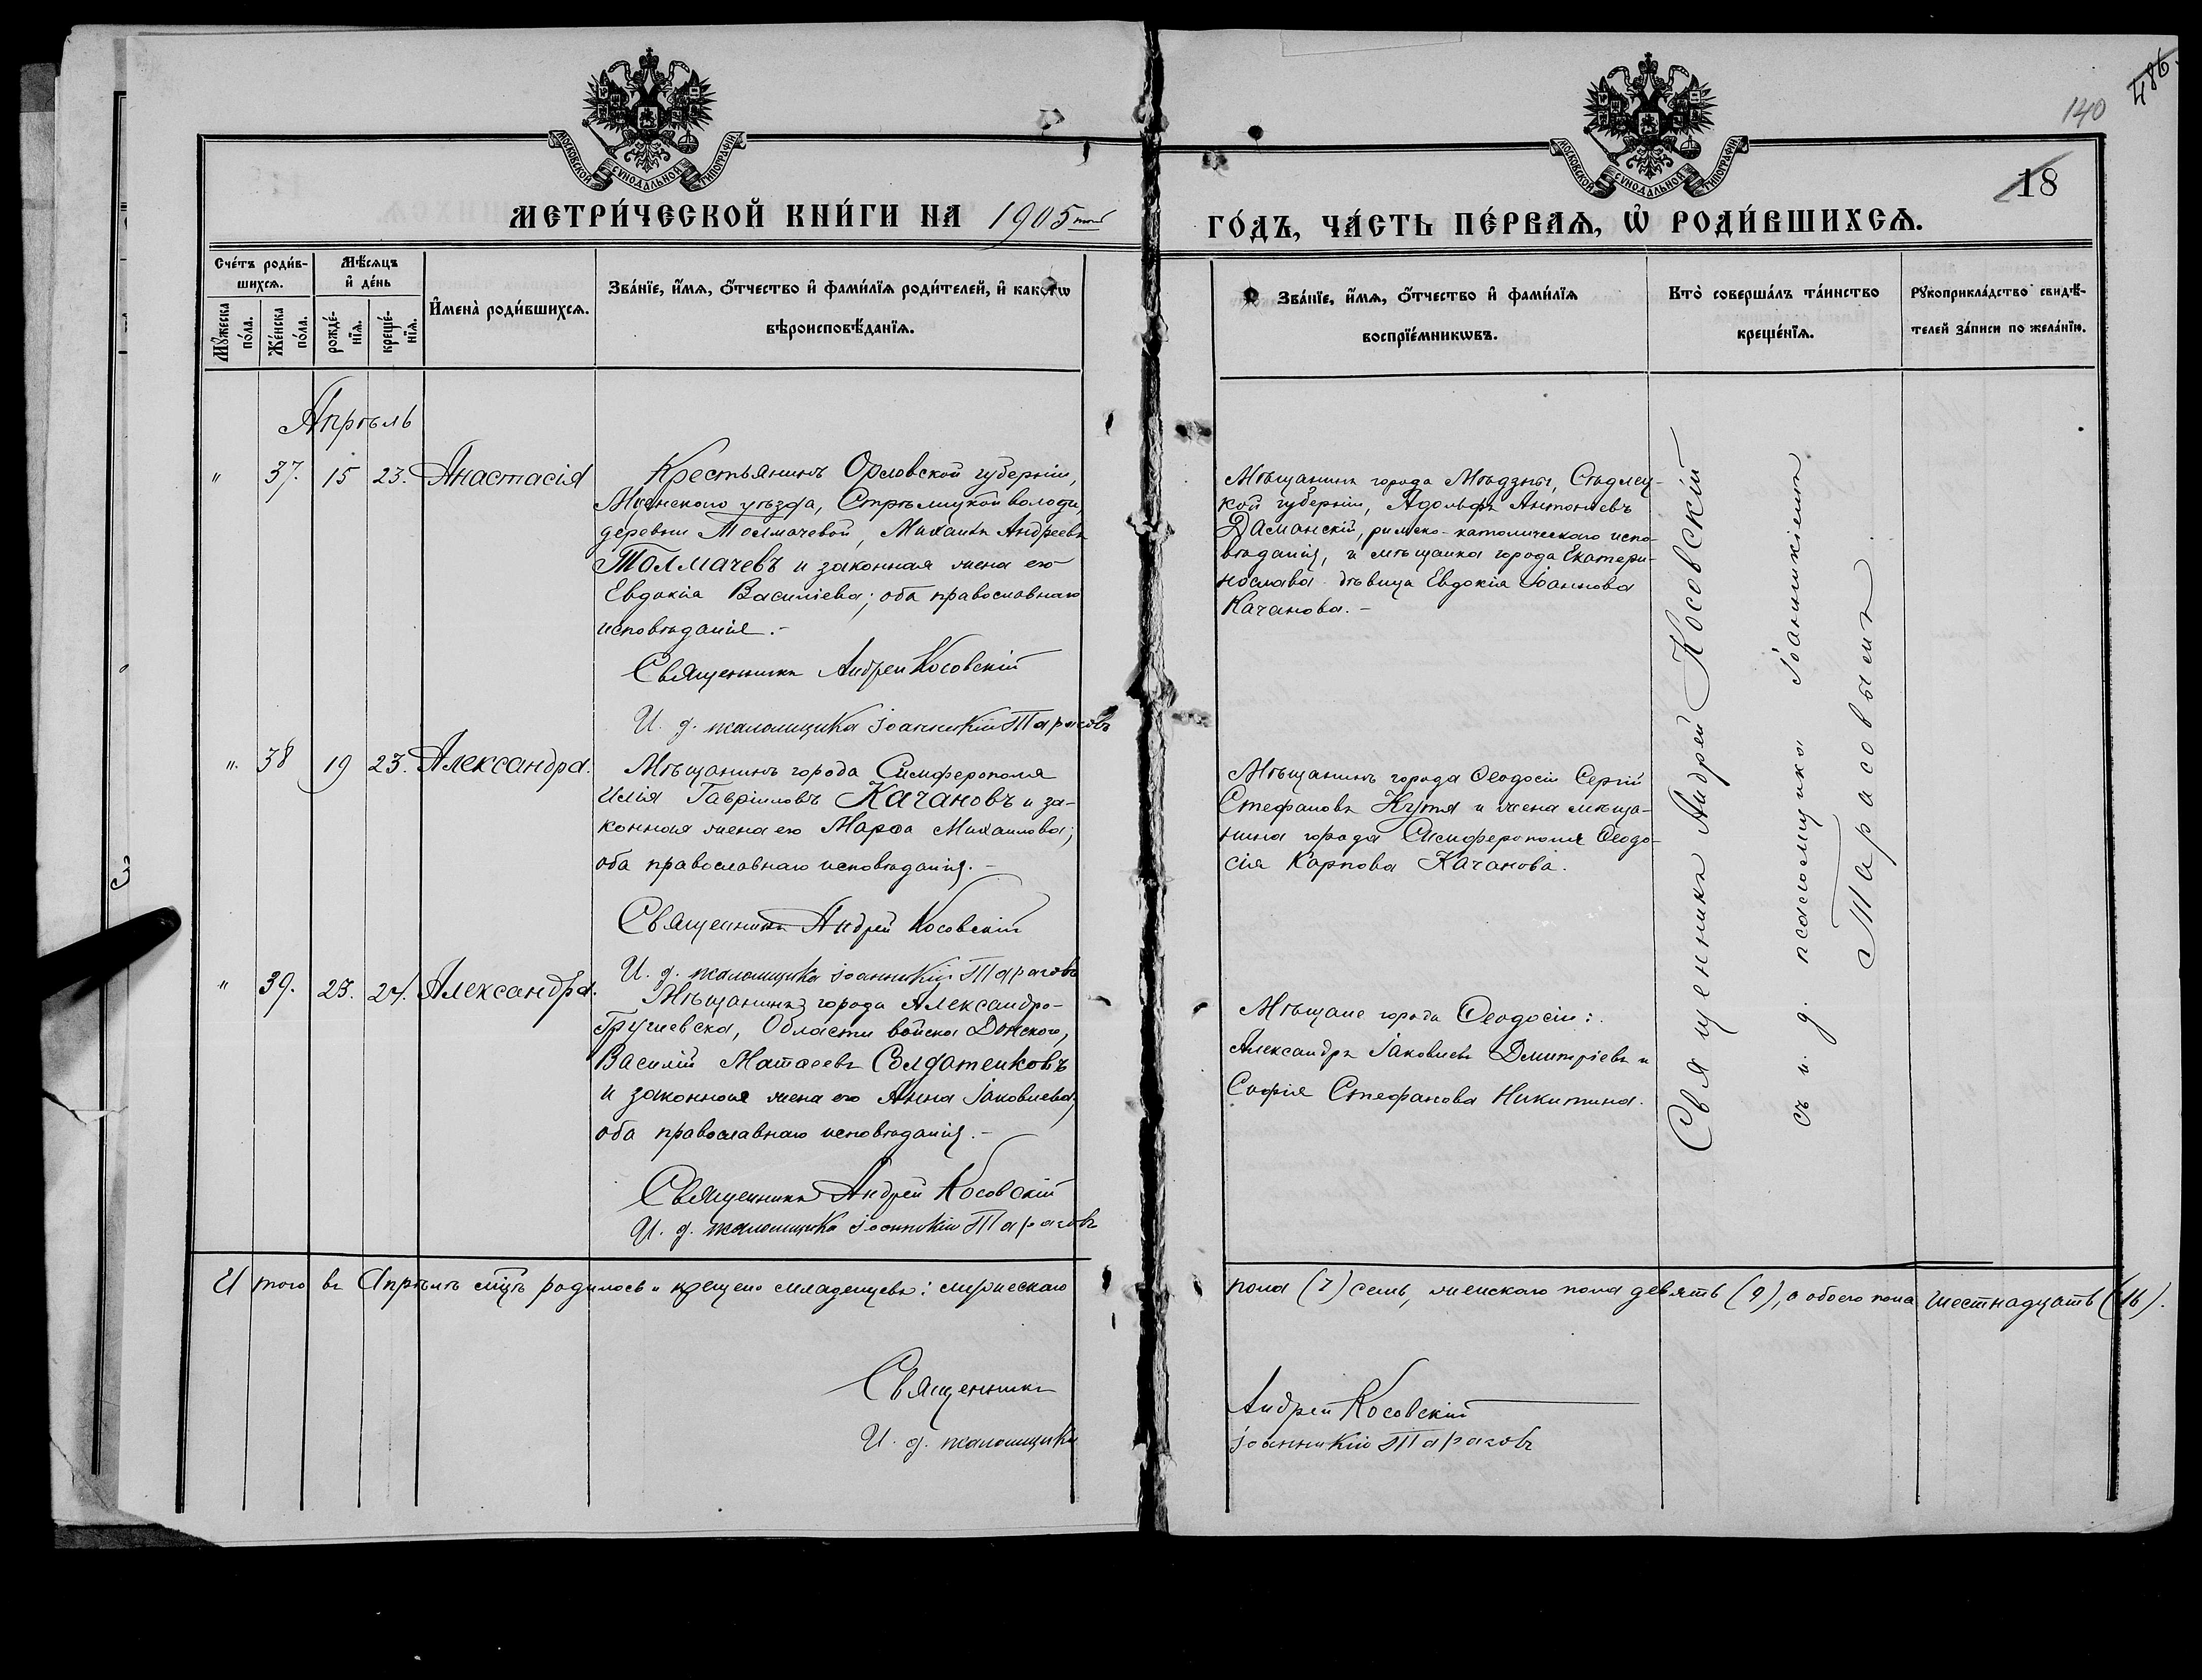 486.
140
18
МОСКОВСКОЙ СѴНОДАЛЬНОЙ ТИПОГРАФІИ
МОСКОВСКОЙ СѴНОДАЛЬНОЙ ТИПОГРАФІИ
МЕТРИ́ЧЕСКОЙ КНИ́ГИ НА 1905 ГО́ДЪ, ЧА́СТЬ ПЕ́РВАѦ, Ѽ РОДИ́ВШИХСѦ.
Сче́тъ роди́вшихсѧ.
Мѹ́жеска по́ла.
Же́нска по́ла.
Мѣ́сѧцъ и҆ де́нь
рожде́нїѧ.
креще́нїѧ.
И҆мена̀ роди́вшихсѧ.
Зва́нїе, и҆́мѧ, ѻ҆́тчество и҆ фами́лїѧ роди́телей, и҆ какогѡ
вѣроисповѣ́данїѧ.
Зва́нїе, и҆́мѧ, ѻ҆́тчество и҆ фами́лїѧ
воспрїе́мникѡвъ.
Кто̀ соверша́лъ та́инство
креще́нїѧ.
Рѹкоприкла́дство свидѣ́телей за́писи по жела́нїю.
Апрѣль
" 37. 15 23. Анастасія
Крестьянинъ Орловской губерніи,
Мценскаго уѣзда, Стрѣлицкой волости,
деревни Толмачевой, Михаилъ Андреевъ
Толмачевъ и законная жена его
Евдокія Василіева; оба православнаго
исповѣданія.-
Священникъ Андрей Косовскій
И. д. псаломщика Іоанникій Тарасовъ
Мѣщанинъ города Мѣдзны, Сѣдлец-
кой губерніи, Адольфъ Антоніевъ
Даманскій, римско-католическаго испо-
вѣданія, и мѣщанка города Екатери-
нослава дѣвица Евдокія Іоаннова
Качанова.-
". 38 19 23. Александра.
Мѣщанинъ города Симферополя
Илія Гавріиловъ Качановъ и за-
конная жена его Марѳа Михаилова;
оба православнаго исповѣданія.-
Священникъ Андрей Косовскій
И. д. псаломщика Іоанникій Тарасовъ
Мѣщанинъ города Ѳеодосіи Сергій
Стефановъ Кутя и жена мѣща-
нина города Симферополя Ѳеодо-
сія Карпова Качанова.
" 39. 23. 24. Александра.
Мѣщанинъ города Александро-
Грушевска, Области войска Донского,
Василій Матѳеевъ Солдатенковъ
и законная жена его Анна Іаковлева,
оба православнаго исповѣданія.-
Священникъ Андрей Косовскій
И. д. псаломщика Іоанникій Тарасовъ
Мѣщане города Ѳеодосіи:
Александръ Іаковлевъ Дмитріевъ и
Софія Стефанова Никитина.
Священникъ Андрей Косовскій
съ и. д. псаломщика Іоанникіемъ
Тарасовымъ.
Итого въ Апрѣлѣ мцѣ родилось и крещено младенцевъ: мужескаго пола (7) семь, женскаго пола девять (9), а обоего пола шестнадцать (16).
Священникъ Андрей Косовскій
И. д. псаломщика Іоанникій Тарасовъ